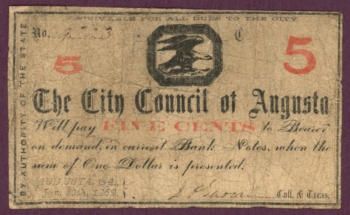 RECEIVABLE FOR ALL DUES TO THE CITY
BY AUTHORITY OF THE STATE
No.
C
5
5
The City Council of Augusta
Will pay FIVE CENTS to Bearer
on demand, in current Bank Notes, when the
sum of One Dollar is presented.
AUGUSTA, GA.
Coll. & Treas.